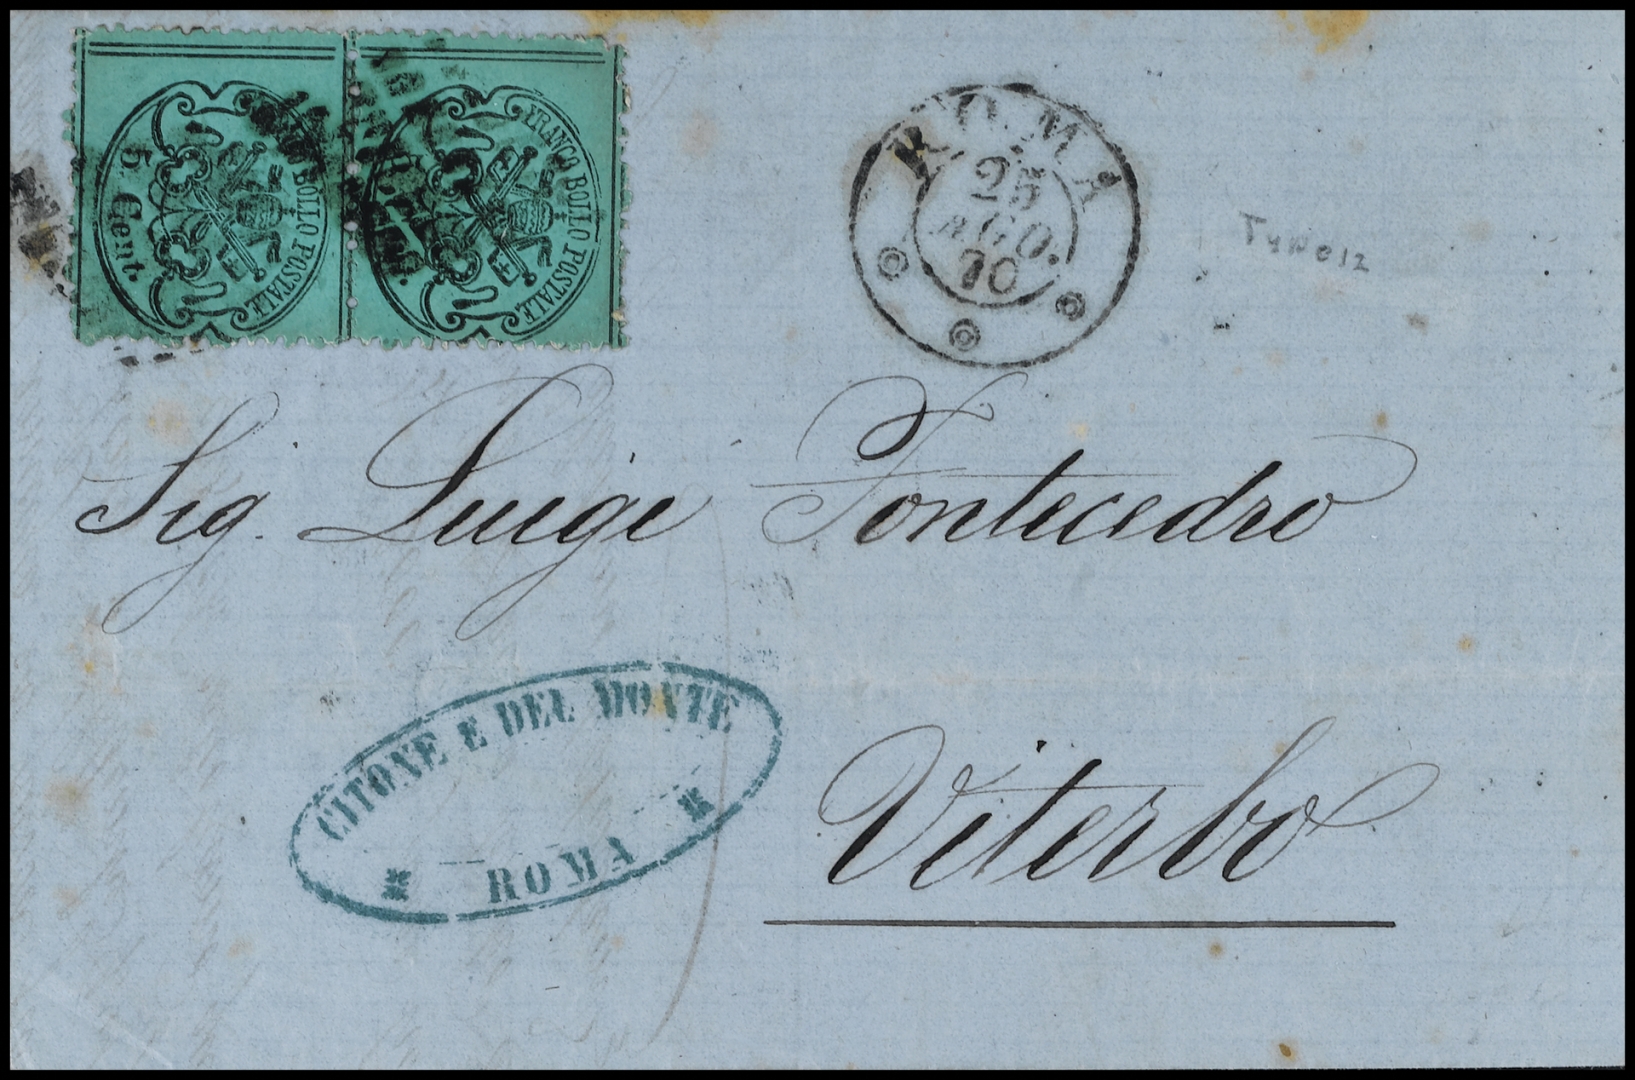 BOLLO POSTALE
5 Cent.
FRANCO BOLLO POSTALE
ROMA
25
AGO.
70
Sig. Luigi Fontecedro
CITONE E DEL MONTE
ROMA
Viterbo